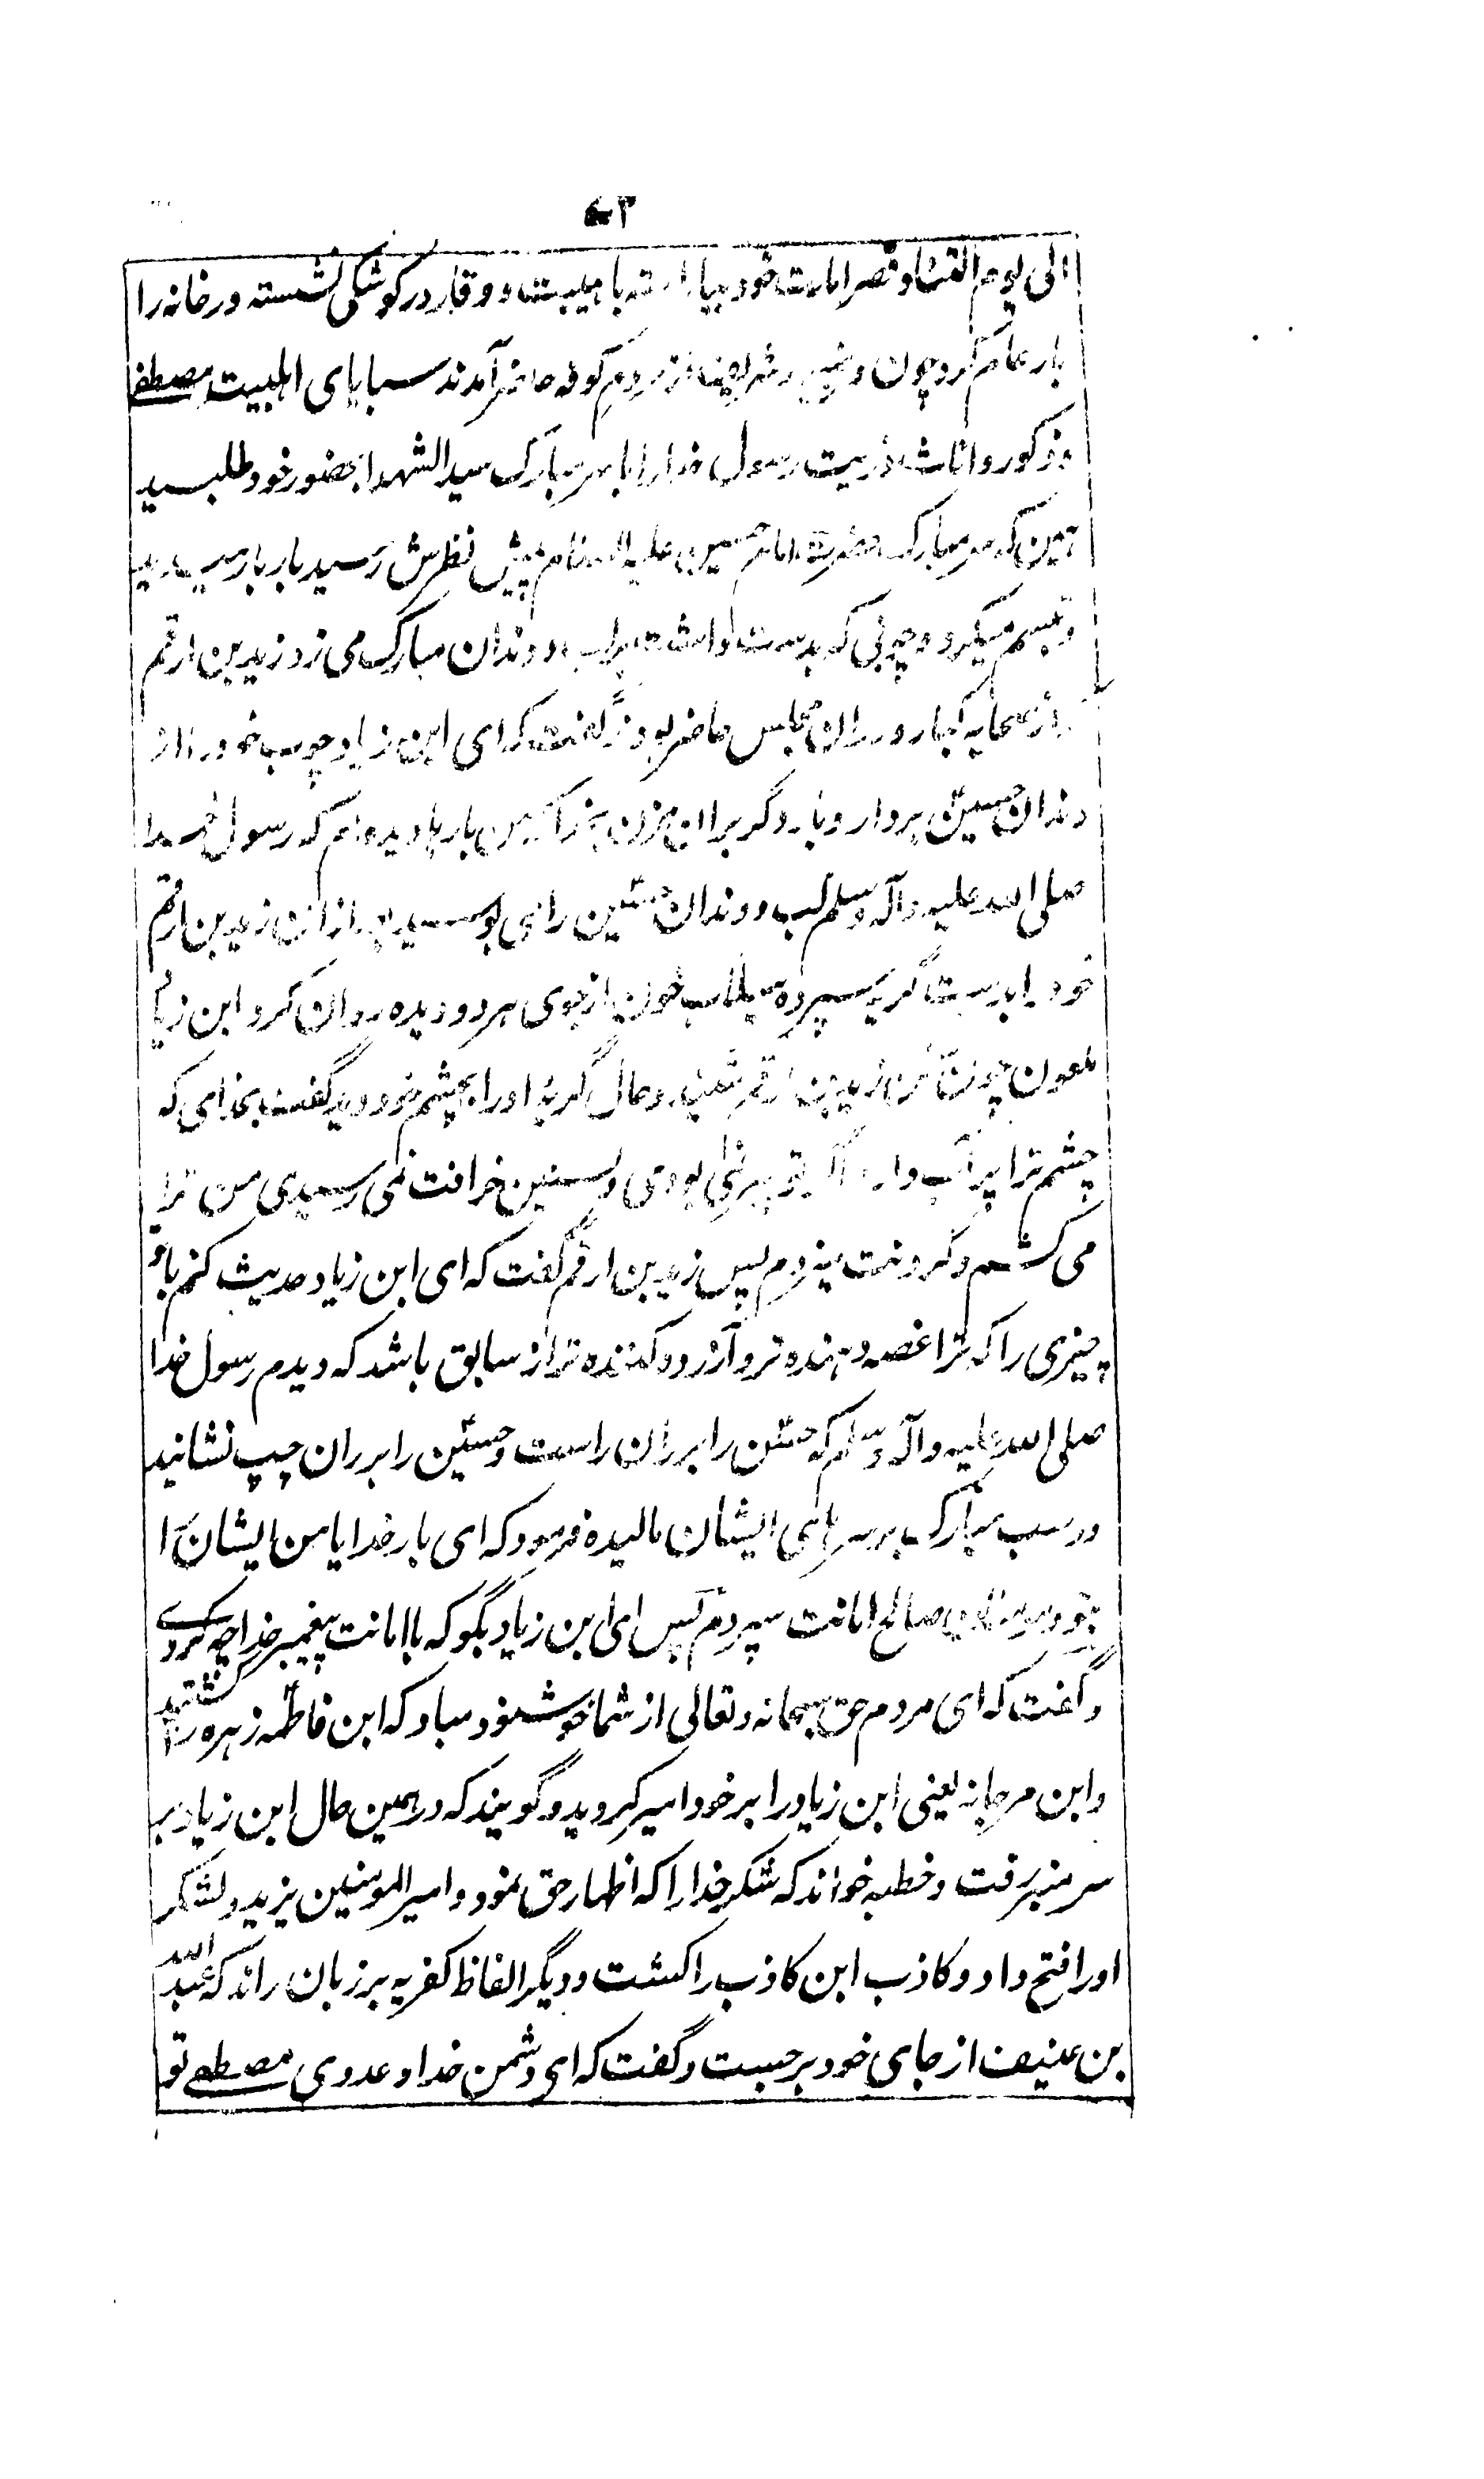 الی یوم القیامة و قصر امارت خود بیاراسته با هیبت و وقار در کوشکی نشسته در خانه را
بار عام کرد چون وضیع و شریف از مردم کوفه حاضر آمدند سبایای اهلبیت مصطفی
و ذکور و اناث ذریت رسول خدا را با سر مبارک سید الشهدا بحضور خود طلبید
همین که سر مبارک حضرت امام حسین علیه السلام پیش نظرش رسید بار بار میدید
و تبسم میکرد و چوبی که بدست داشت بر لب و دندان مبارک می زد زید بن ارقم
از صحابه کبار در ان مجلس حاضر بود گفت که ای ابن زیاد چوب خود را از
دندان حسین بردار و بار دگر بر ان مزن بخدا که من بارها دیده ام که رسول خدا
صلی الله علیه و آله وسلم لب و دندان حسین را می بوسید بعد از ان زید بن ارقم
خود را بدست گریه سپرده سیلاب خون از جوی هر دو دیده روان کرد ابن زیاد
ملعون چون سخن زید بن ارقم شنید و حال گریهٔ او را بچشم خود دید گفت بخدای که
چشم ترا پر آب دارد اگر تو پیر نمی بودی و بسنین خرافت نمی رسیدی من ترا
می کشتم و گردنت میزدم پس زید بن ارقم گفت که ای ابن زیاد حدیث کنم با تو
چیزی را که ترا غصه دهنده تر و آزرده کننده تر از سابق باشد که دیدم رسول خدا
صلی الله علیه و آله وسلم که حسن را بر ران راست و حسین را بر ران چپ نشانید
و دست مبارک بر سر های ایشان مالیده فرمود که ای بار خدایا من ایشان را
بتو و مومنان صالح امانت سپردم پس ای ابن زیاد بگو که با امانت پیغمبر خدا چه کردے
و گفت که ای مردم حق سبحانه و تعالی از شما خوشنود مباد که ابن فاطمه زهره را کشتید
و ابن مرجانه یعنی ابن زیاد را بر خود امیر کردید و گویند که در همین حال ابن زیاد بر
سر منبر رفت و خطبه خواند که شکر خدا را که اظهار حق نمود و امیر المومنین یزید و لشکر
او را فتح داد و کاذب ابن کاذب را کشت و دیگر الفاظ کفریه بر زبان راند که عبد الله
بن عفیف از جای خود برجست و گفت که ای دشمن خدا و عدوی مصطفے تو